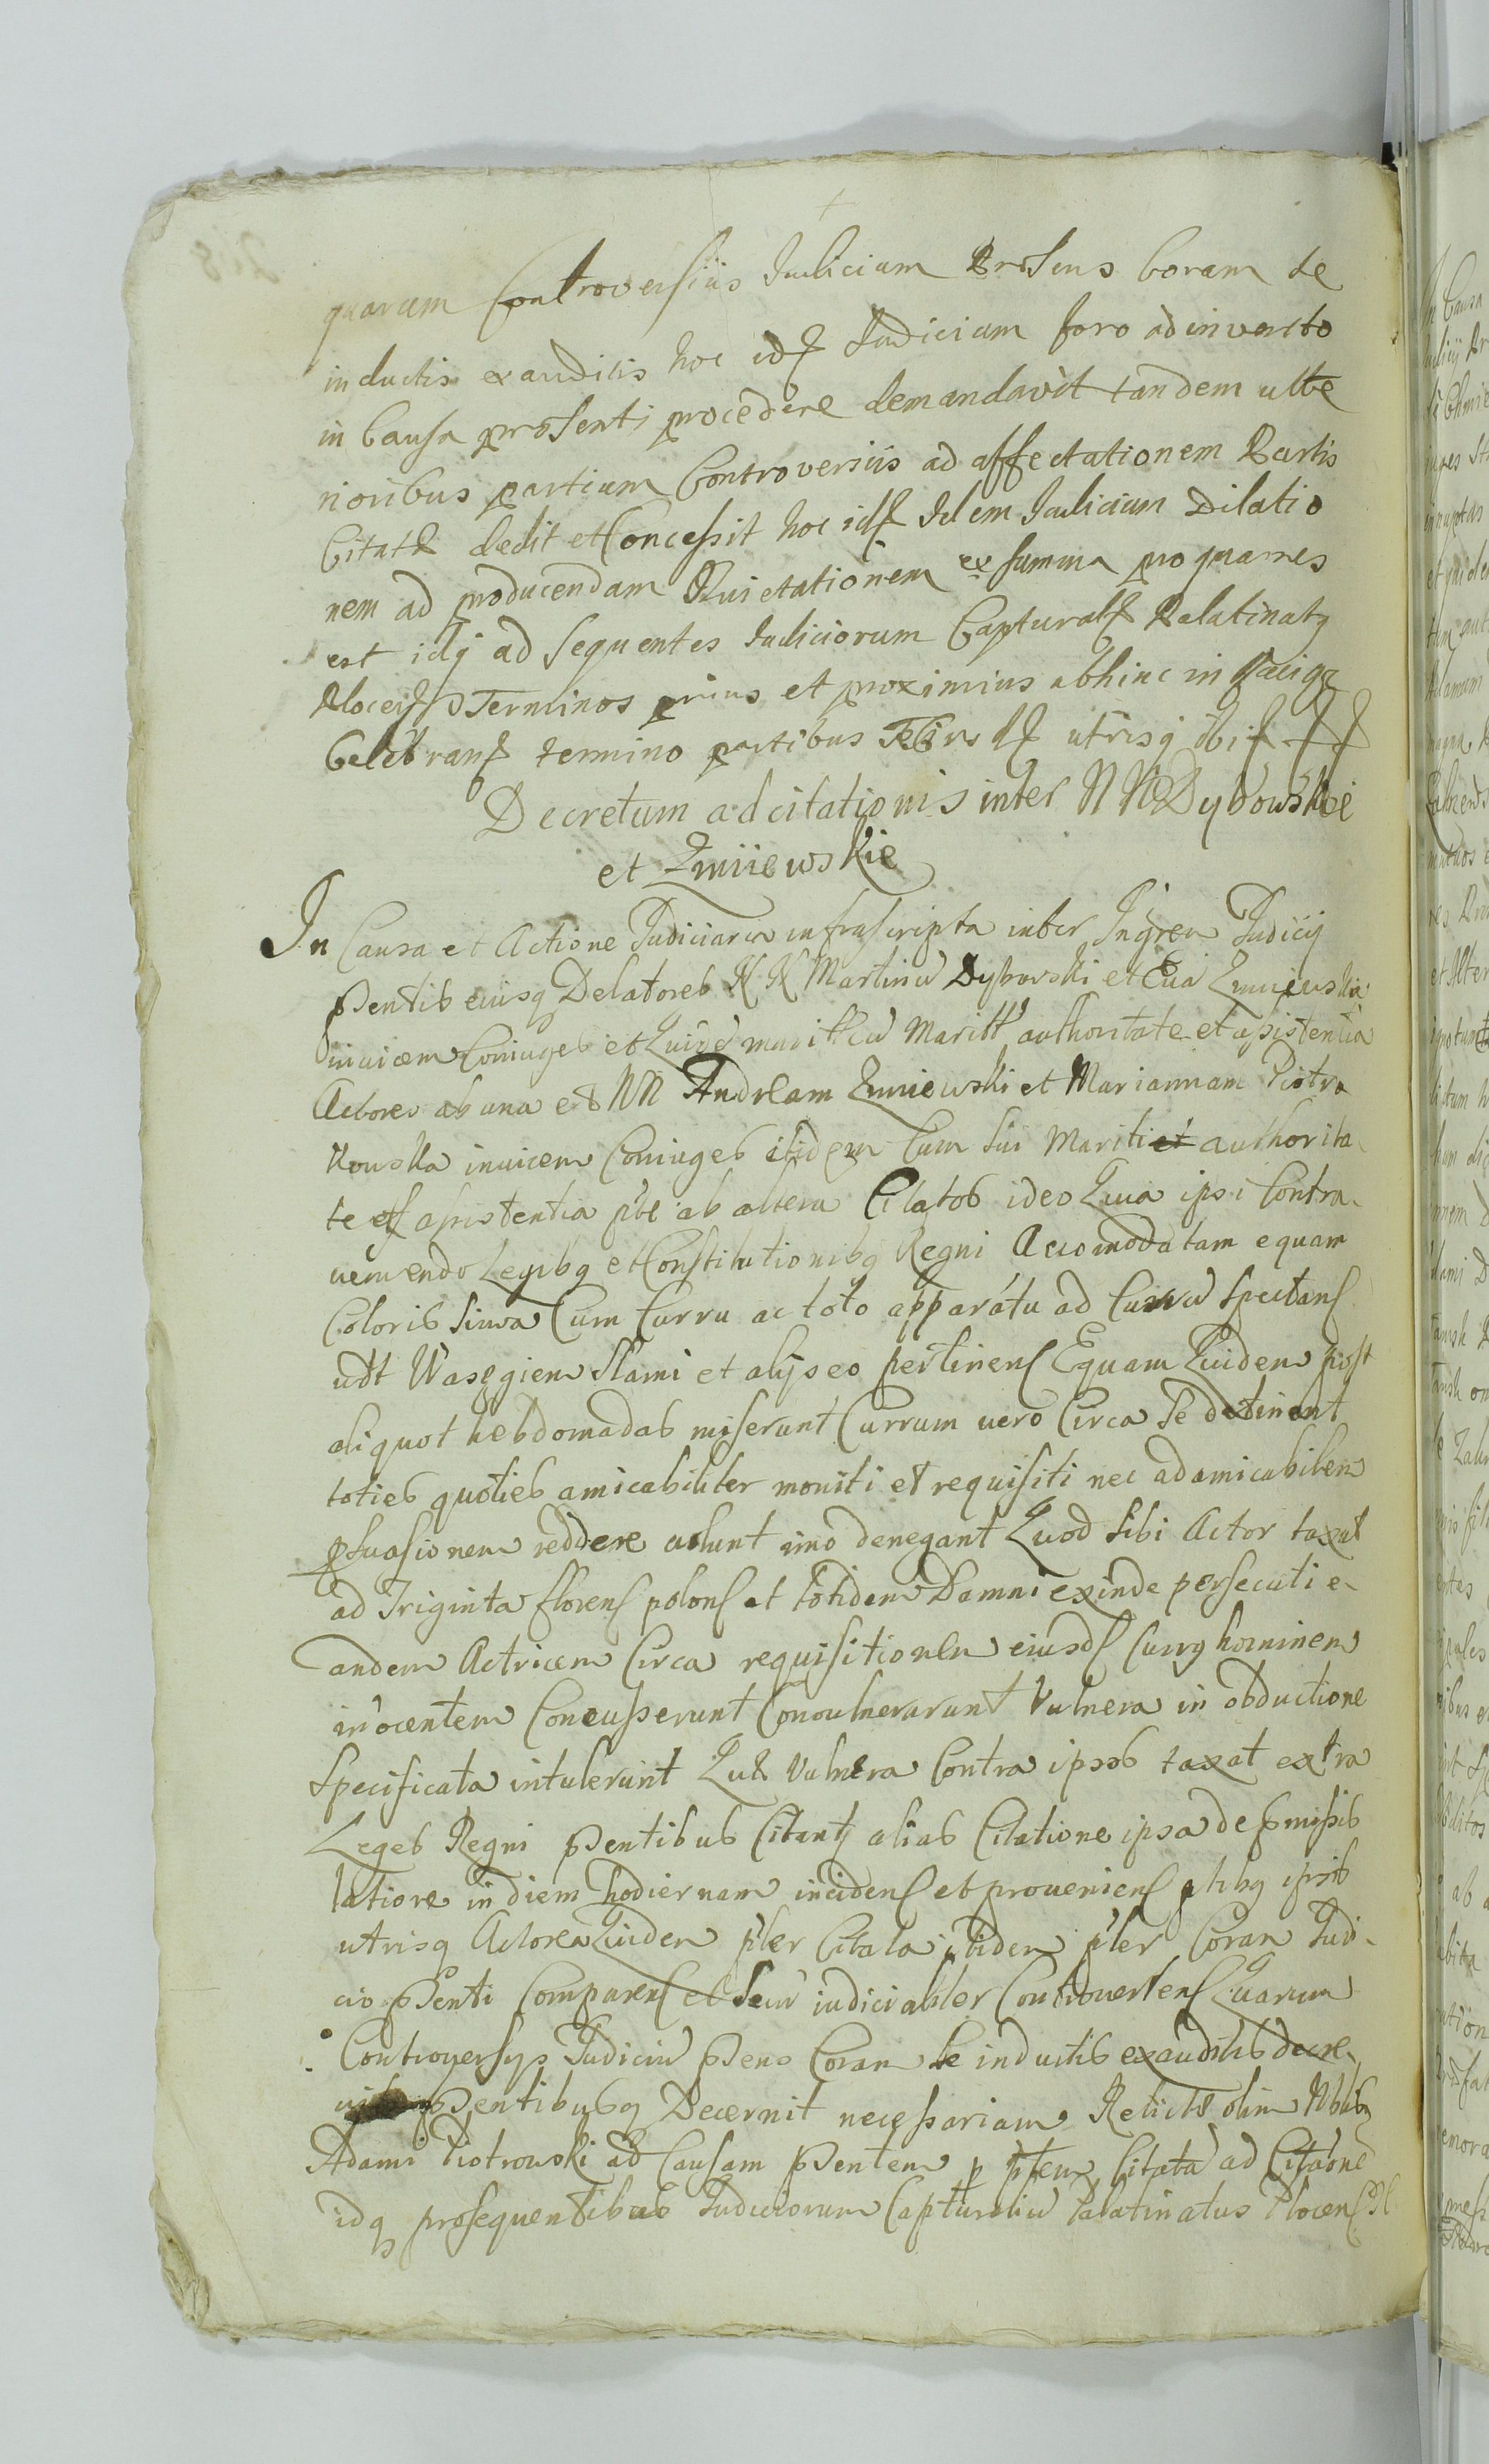 quarum Controversiis Iudicium Præsens Coram se
inductis exauditis hoc idf Iudicium foro adinvento
in Causa præsenti procedere demandavit tandem ulte
rioribus partium Controversiis ad affectationem Partis
Citatæ dedit et Concessit hoc idf Idem Iudicium Dilatio
nem ad producendam Quietationem ex summa pro qua
est idq ad sequentes Iudiciorum Captural Palatinatq
Plocen Terminos prius et proximius abhinc in Raciąz
Celebran termino partibus utrisq
Decretum adcitationis inter NN Dybowskie
et Zmiiewskie
In Causa et Actione Iudiciaria infrascripta inter Ingren Iudicij
psentis eiusq Delatores NN Martinū Dybowski et Eua Zmiiewskia
inuicem Coniuges et authoritate et assistentia
Actores ab una et NN Andream Zmiewski et Mariannam Piotro
kouska inuicem Coniuges itidem Cum sui Mariti authorita
te et assistentia pte ab altera Citatos ideo Quia ipsi Contra
ueniendo Legibq et Constitutionibq Regni Accomodatam equam
Coloris siwa Cum Curru ac toto apparátu ad Currū Spectan
udt Wasęgiem Slami et alijs eo pertinen Equam Quidem post
aliquot hebdomadas miserunt Currum uero Circa se detinent
toties quoties amicabiliter moniti et requisiti nec ad amicabilem
psuasionem reddere uolunt imo denegant Quod sibi Actor taxat
ad Triginta floren polon et totidem Damni exinde persecuti e
andem Actricem Circa requisitionem eiusd Currq hominem
inocentem Concusserunt Conuulnerarunt Vulnera in obductione
Specificata intulerunt Quæ Vulnera Contra ipsos taxat extra
Leges Regni psentibus Citantq alias Citatione ipsa de pmissis
latiore in diem hodiernam inciden et prouenien ptibq ipsis
utrisq Actorea Quidem pler Citata itidem pler Coram Iudi
cio psenti Comparen et secū iudicialiter Controuerten Quarum
Controuersys Iudiciū psens Coram se inductis exauditis decre
psentibusq Decernit necessariam Relictæ olim Nblis
Adami Piotrowski ad Causam psentem p ptem Citatā ad Citaone
idq prosequentibus Iudiciorum Capturaliū Palatinatus Plocen